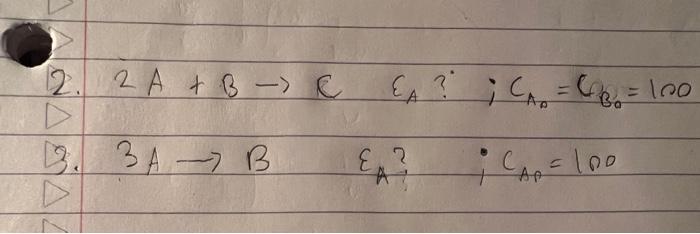 2. 2A + B → C εA ? ; CA₀ = CB₀ = 100
3. 3A → B εA? ; CA₀ = 100